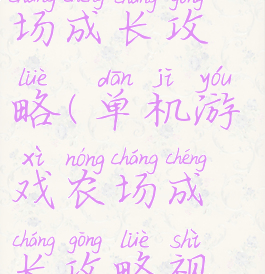 chǎng chéng cháng gōng
场成长攻
lüè dān jī yóu
略(单机游
xì nóng cháng chéng
戏农场成
cháng gōng lüè shì
长攻略视